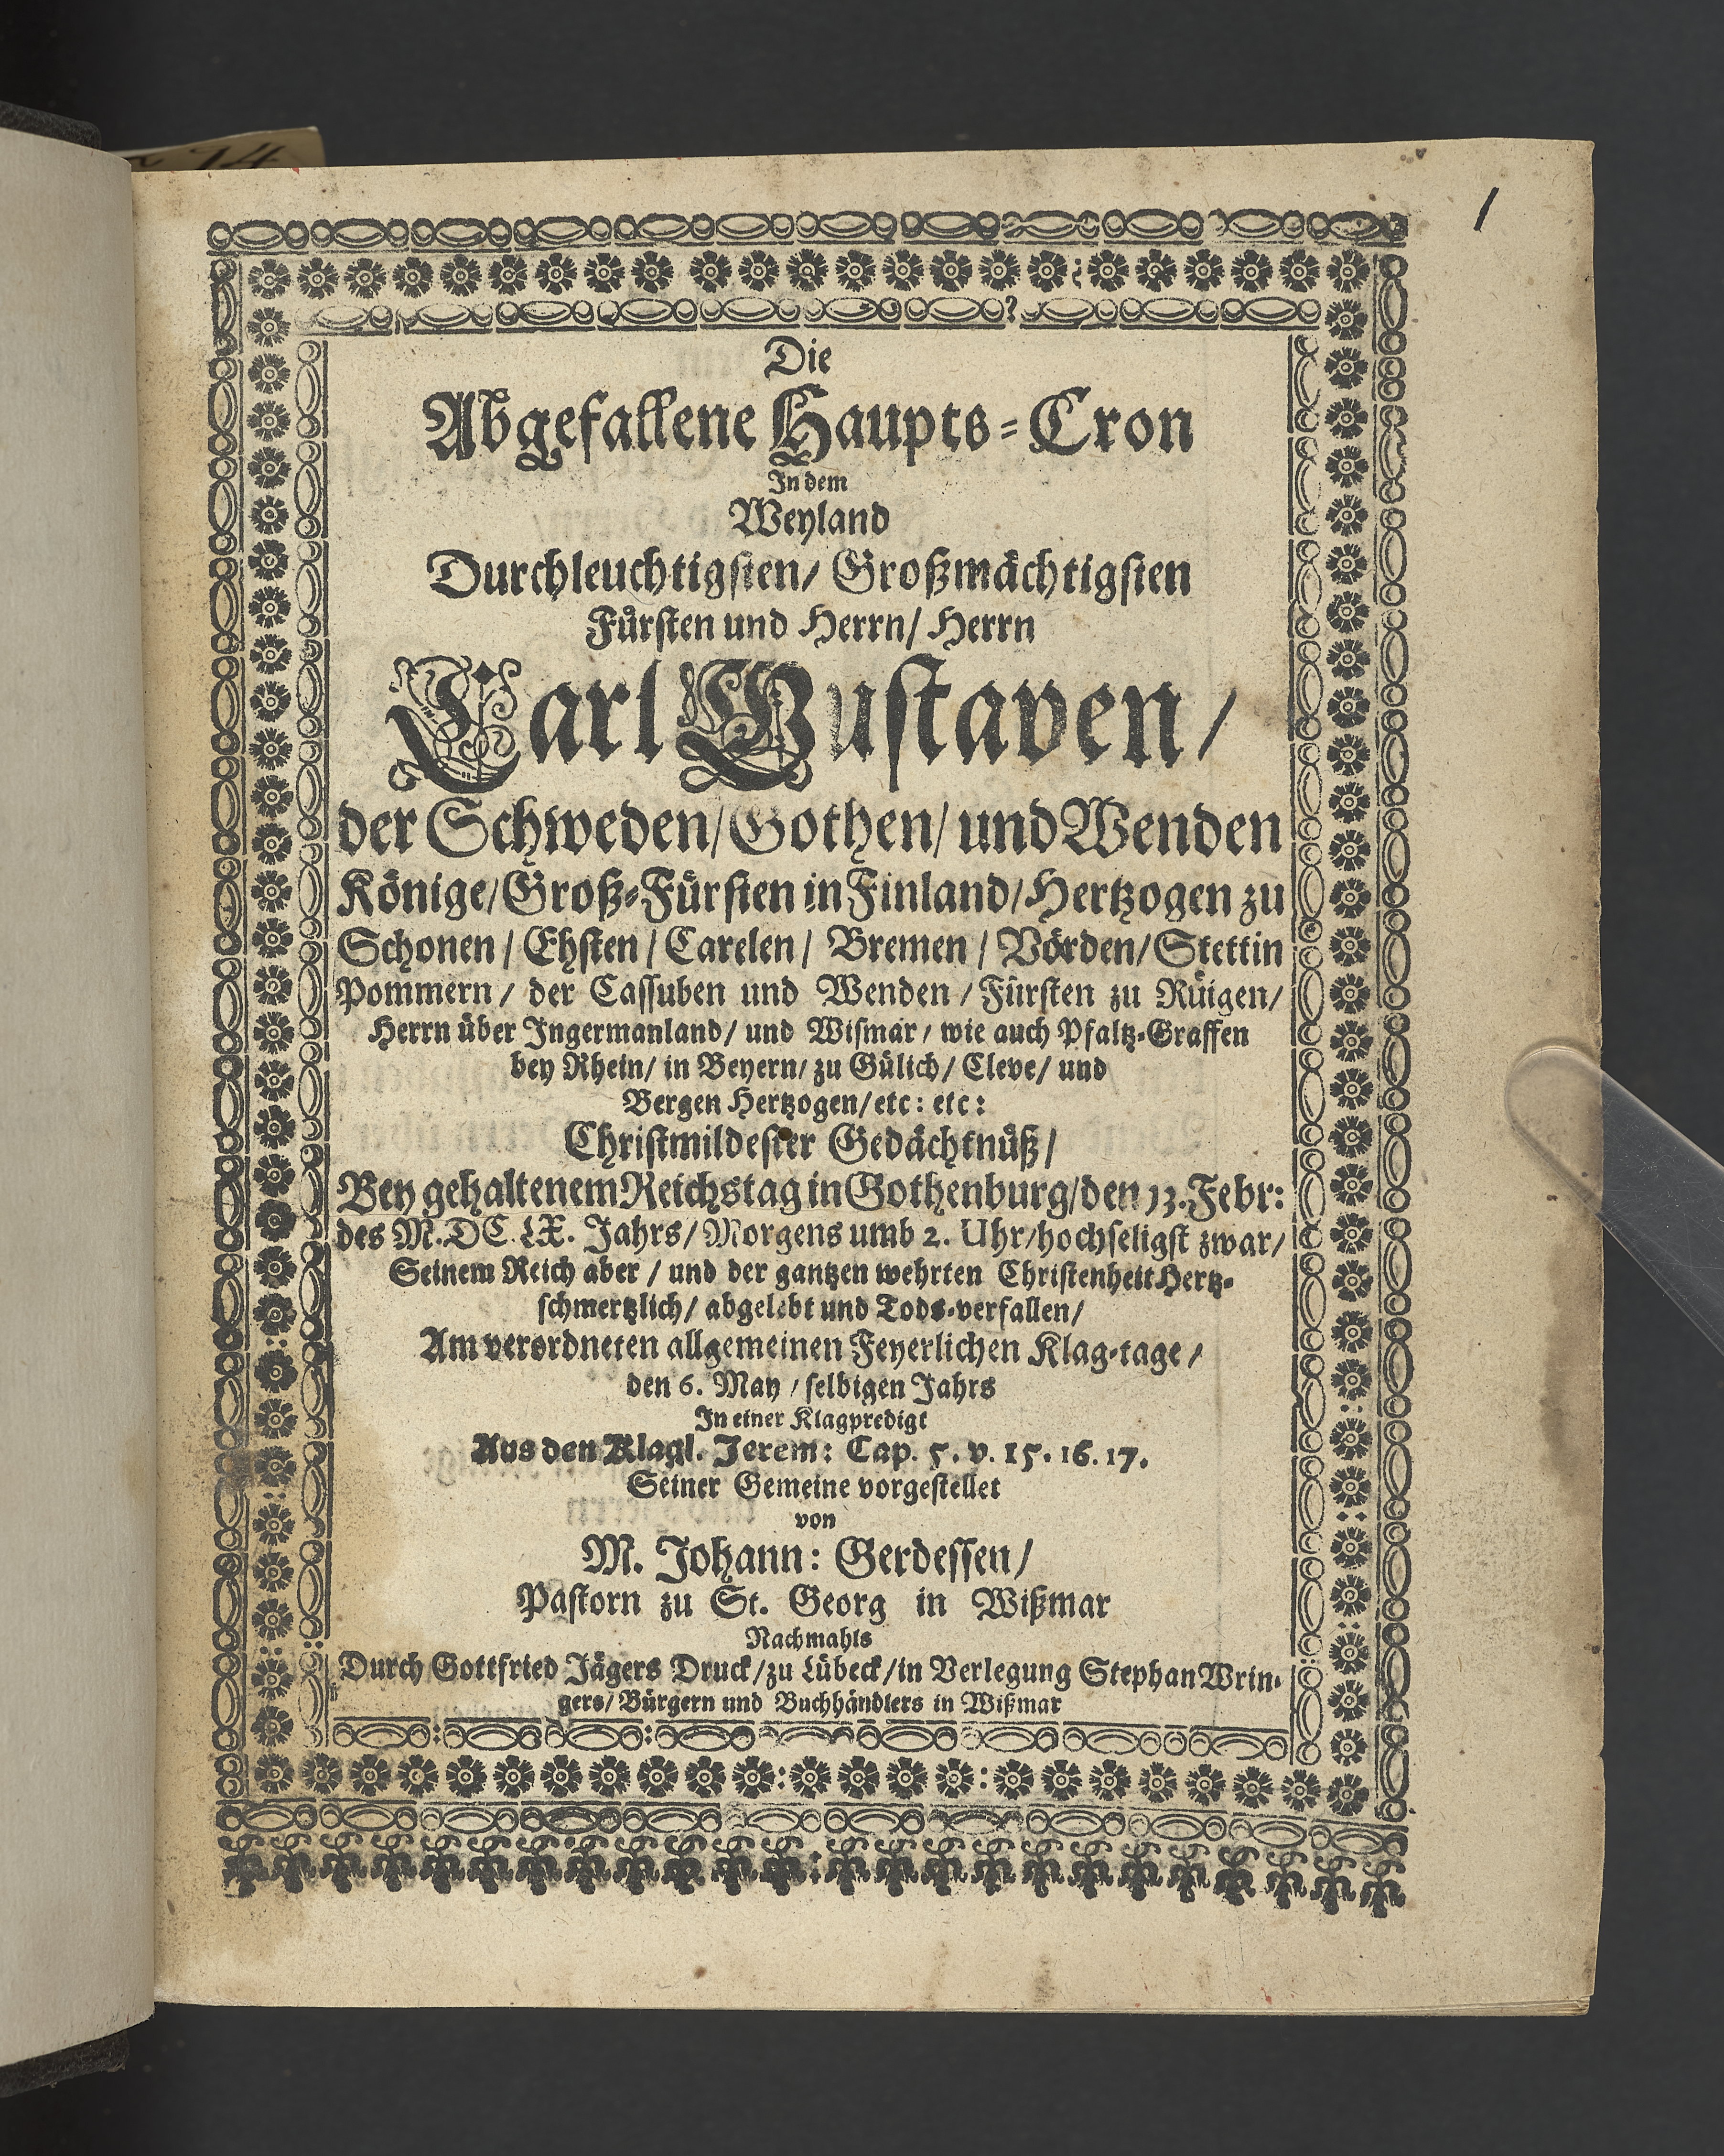 n 14
1
Die
Abgefallene Haupts-Cron
In dem
Weyland
Durchleuchtigsten/ Großmächtigsten
Fürsten und Herrn/ Herrn
Carl Gustaven/
der Schweden/Gothen/und Wenden
Könige/Groß-Fürsten in Finland/Hertzogen zu
Schonen/ Ehsten/ Carelen/ Bremen/ Vörden/Stettin
Pommern/ der Cassuben und Wenden/Fürsten zu Rüigen/
Herrn über Ingermanland/ und Wismar/ wie auch Pfaltz-Graffen
bey Rhein/ in Beyern/ zu Gülich/ Cleve/ und
Bergen Hertzogen/etc: etc:
Christmildester Gedächtnüß/
Bey gehaltenem Reichstag in Gothenburg/den 13. Febr:
des M.DC.LX. Jahrs/ Morgens umb 2. Uhr/hochseligst zwar/
Seinem Reich aber/ und der gantzen wehrten Christenheit Hertz-
schmertzlich/ abgelebt und Tods-verfallen/
Am verordneten allgemeinen Feyerlichen Klag-tage/
den 6. May/ selbigen Jahrs
In einer Klagpredigt
Aus den Klagl. Jerem: Cap. 5. v. 15. 16. 17.
Seiner Gemeine vorgestellet
von
M. Johann: Gerdessen/
Pastorn zu St. Georg in Wißmar
Nachmahls
Durch Gottfried Jägers Druck/zu Lübeck/in Verlegung Stephan Wrin-
gers/ Bürgern und Buchhändlers in Wißmar